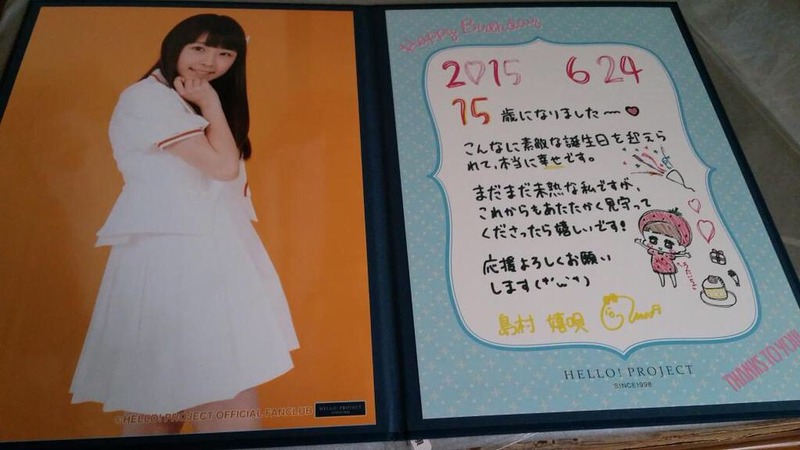 ©HELLO! PROJECT OFFICIAL FANCLUB
HELLO! PROJECT
Happy Birthday
2015 6 24
15歳になりました〜♥
こんなに素敵な誕生日を迎えら
れて、本当に幸せです。
まだまだ未熟な私ですが、
これからもあたたかく見守って
くださったら嬉しいです!
応援よろしくお願い
します(*'ω'*)
島村 嬉唄
HELLO! PROJECT
SINCE1998
THANKS TO YOU!